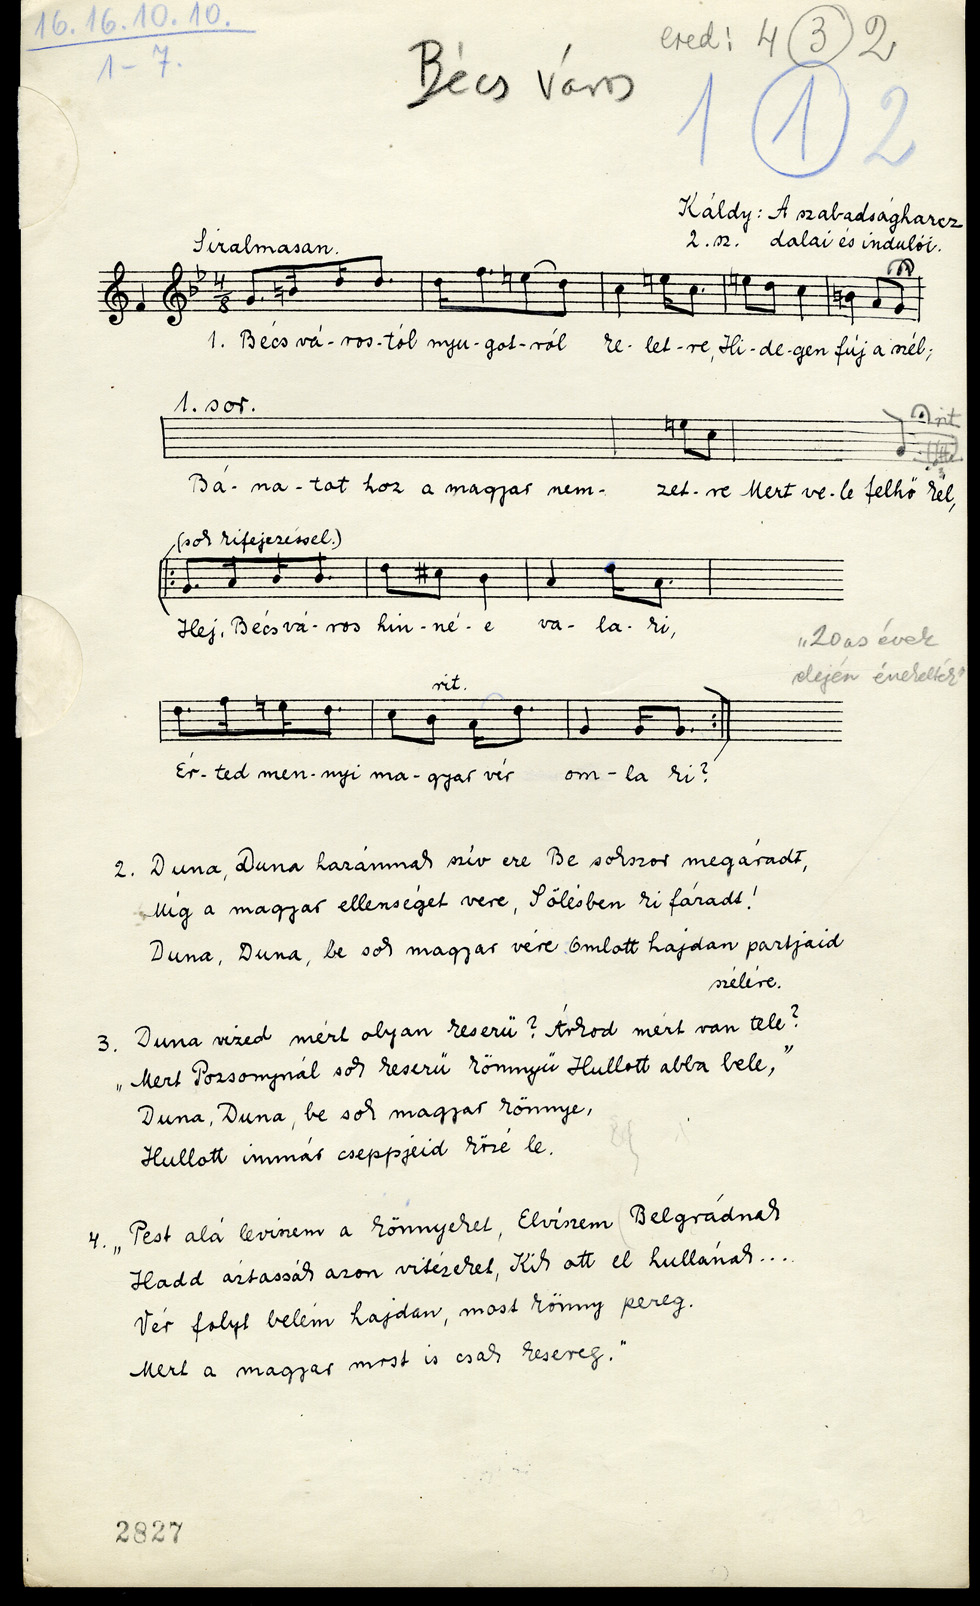 16. 16. 10. 10.
1 - 7.
ered: 4 3 2
Bécs Város
1 1 2
Káldy: A szabadságharcz
2. sz. dalai és indulói.
Siralmasan.
4
8
1. Bécs vá-ros-tól nyu-got-ról ke-let-re, Hi-de-gen fúj a szél;
1. sor.
rit
Bá-na-tot hoz a magyar nem-zet-re Mert ve-le felhő kél,
(sok kifejezéssel.)
Hej, Bécs vá-ros hin-né-e va-la-ki,
"20as évek
elején énekelték"
rit.
Ér-ted men-nyi ma-gyar vér om-la ki?
2. Duna, Duna hazámnak szív ere Be sokszor megáradt,
Míg a magyar ellenséget vere, S ölésben ki fáradt!
Duna, Duna, be sok magyar vére Omlott hajdan partjaid
szélére.
3. Duna vized mért olyan keserü? Árkod mért van tele?
"Mert Pozsonynál sok keserü könnyü Hullott abba bele,"
Duna, Duna, be sok magyar könnye,
Hullott immár cseppjeid közé le.
4. "Pest alá leviszem a könnyeket, Elviszem Belgrádnak
Hadd áztassák azon vitézeket, Kik ott el hullának...
Vér folyt belém hajdan, most könny pereg.
Mert a magyar most is csak kesereg."
2827